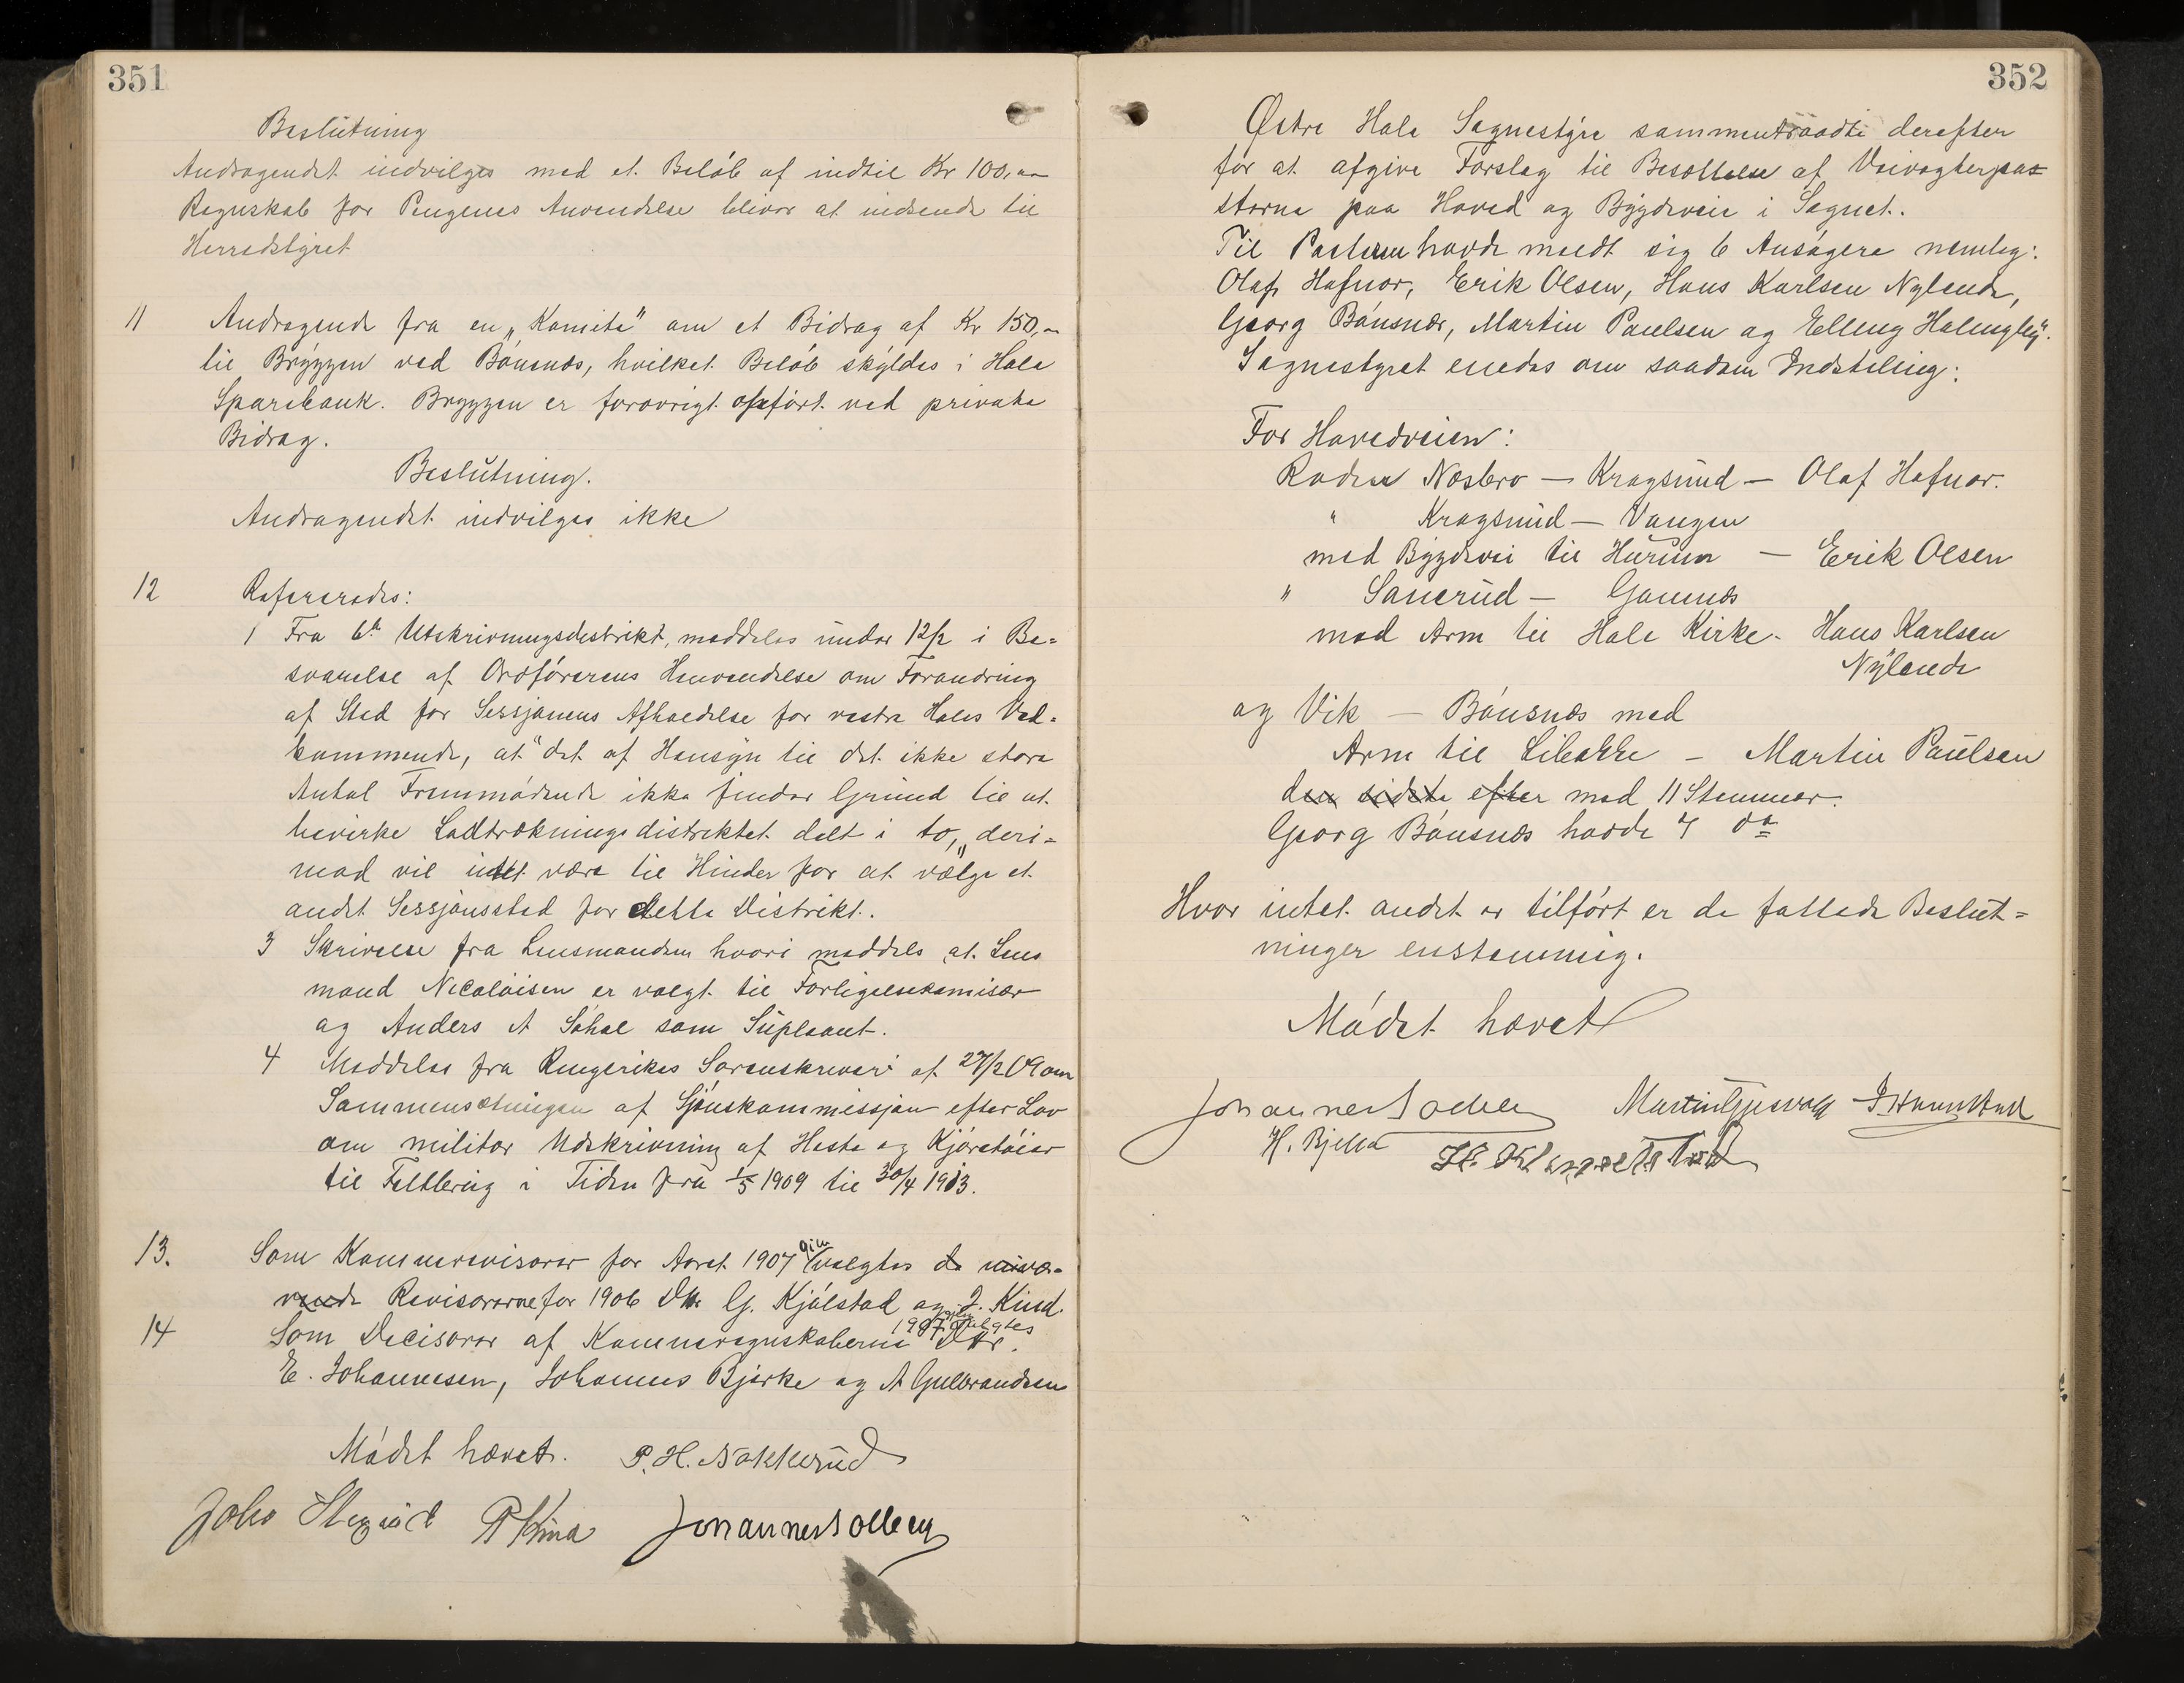 351
Beslutning
Andragendet indvilges med et Beløb af indtil Kr 100,00
Regnskab for Pengenes Anvendelse bliver at indsende til
Herredstyret
11 Andragende fra en „Komite" om et Bidrag af Kr 150,00
til Bryggen ved Bønsnæs, hvilket Beløb skyldes i Hole
Sparebank. Bryggen er forøvrigt opført ved private
Bidrag.
Beslutning.
Andragendet indvilges ikke
12 Refereredes:
1 Fra 6te Utskrivningsdistrikt, meddeles under 12/2 i Be=
svarelse af Ordførerens Henvendelse om Forandring
af Sted for Sessjonens Afholdelse for vestre Holes Ved=
kommende, at "det af Hensyn til det ikke store
Antal Fremmødende ikke finder Grund til at
bevirke Lodtrækningsdistriktet delt i to," deri=
mod vil intet være til Hinder for at vælge et
andet Sessjonssted for dette Distrikt.
3 Skrivelse fra Lensmanden hvori meddels at Lens
mand Nicolaisen er valgt til Forligelseskomisær
og Anders A Søhol som Supleant.
4 Meddeles fra Ringerikes Sorenskriveri af 27/2 09 om
Sammensætningen af Sjønskommissjon efter Lov
om militær Udskrivning af Heste og Kjøretøier
til Feltbrug i Tiden fra 1/5 1909 til 30/4 1913.
13. Som Kommunerevisorer for Aaret 1907 gjen valgtes de nuvæ=
rende Revisorerne for 1906 D'Hr G. Kjølstad og J. Kind.
14 Som Decisorer af Kommuneregnskaberne 1907 valgtes D'Hr.
E. Johannesen, Johannes Bjerke og A Gulbrandsen
Mødet hævet. P. H. Nakkerud
P Kind Johannes Solberg
352
Østre Hole Sognestyre sammentraadte derefter
for at afgive Forslag til Besættelse af Veivogterpos
sterne paa Hoved og Bygdeveie i Sognet.
Til Posterne havde meldt sig 6 Ansøgere nemlig:
Olaf Hafnor, Erik Olsen, Hans Karlsen Nylende,
Georg Bønsnæs, Martin Paulsen og Elling
Sognestyret enedes om saadan Indstilling:
For Hovedveien:
Roden Næsbro — Kragsund — Olaf Hafnor.
" Kragsund — Vangen
med Bygdevei til Hurum — Erik Olsen
" Sanerud — Gomnæs
med Arm til Hole Kirke - Hans Karlsen
Nylende
og Vik — Bønsnæs med
Arm til Libakke — Martin Paulsen
den sidste efter med 11 Stemmer.
Georg Bønsnæs havde 7 do
Hvor intet andet er tilført er de fattede Beslut=
ninger enstemmig.
Mødet hævet
Johannes Solberg Martin Gjesvold
H. Bjella